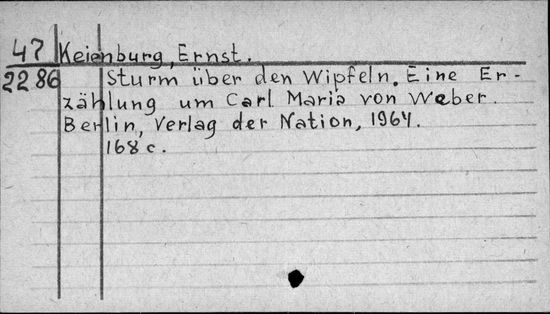 47 Keienburg, Ernst.
2286 Sturm über den Wipfeln. Eine Er-
zählung um Carl Maria von Weber.
Berlin, Verlag der Nation, 1964.
168 c.